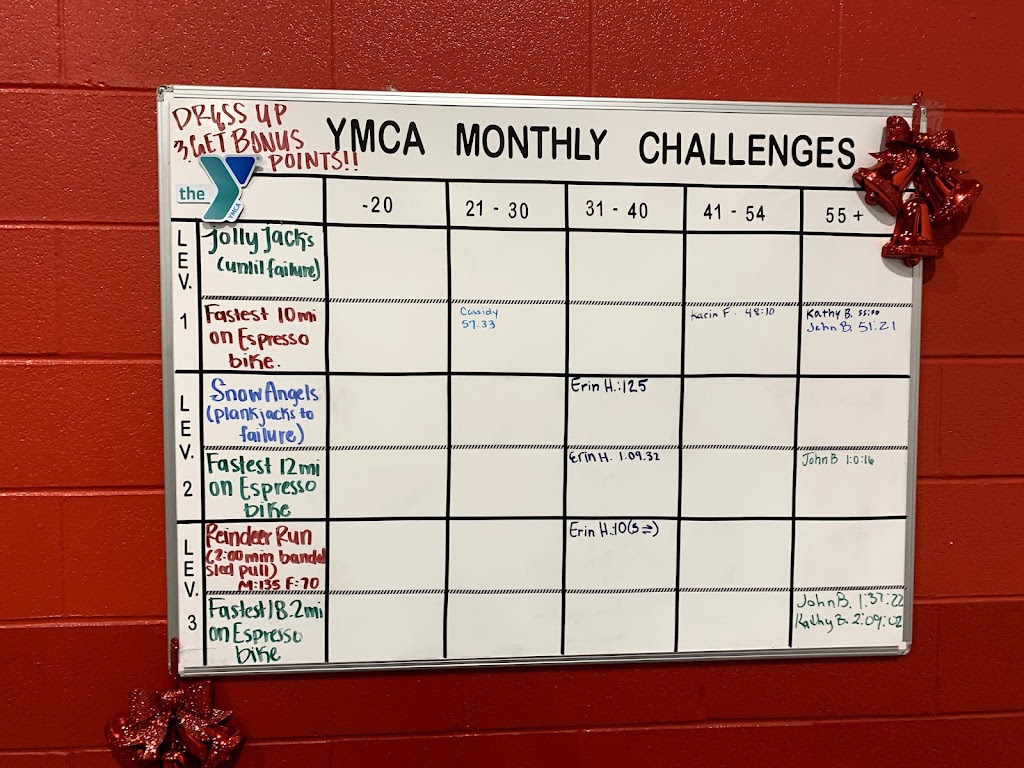 DRESS UP
& GET BONUS
POINTS!!
YMCA MONTHLY CHALLENGES
the Y
YMCA
-20 21 - 30 31 - 40 41 - 54 55 +
LEV. 1
Jolly Jacks
(until failure)
Fastest 10mi
on Espresso
bike.
Cassidy
57:33
Karin F. 48:10
Kathy B. 55:00
John B. 51:21
LEV. 2
Snow Angels
(plank jacks to
failure)
Erin H.: 125
Fastest 12mi
on Espresso
bike
Erin H. 1:09.32
John B 1:0:16
LEV. 3
Reindeer Run
(2:00 min banded
sled pull)
M:135 F:70
Erin H.: 10(5⇌)
Fastest 18.2mi
on Espresso
bike
John B. 1:37:22
Kathy B. 2:09:02